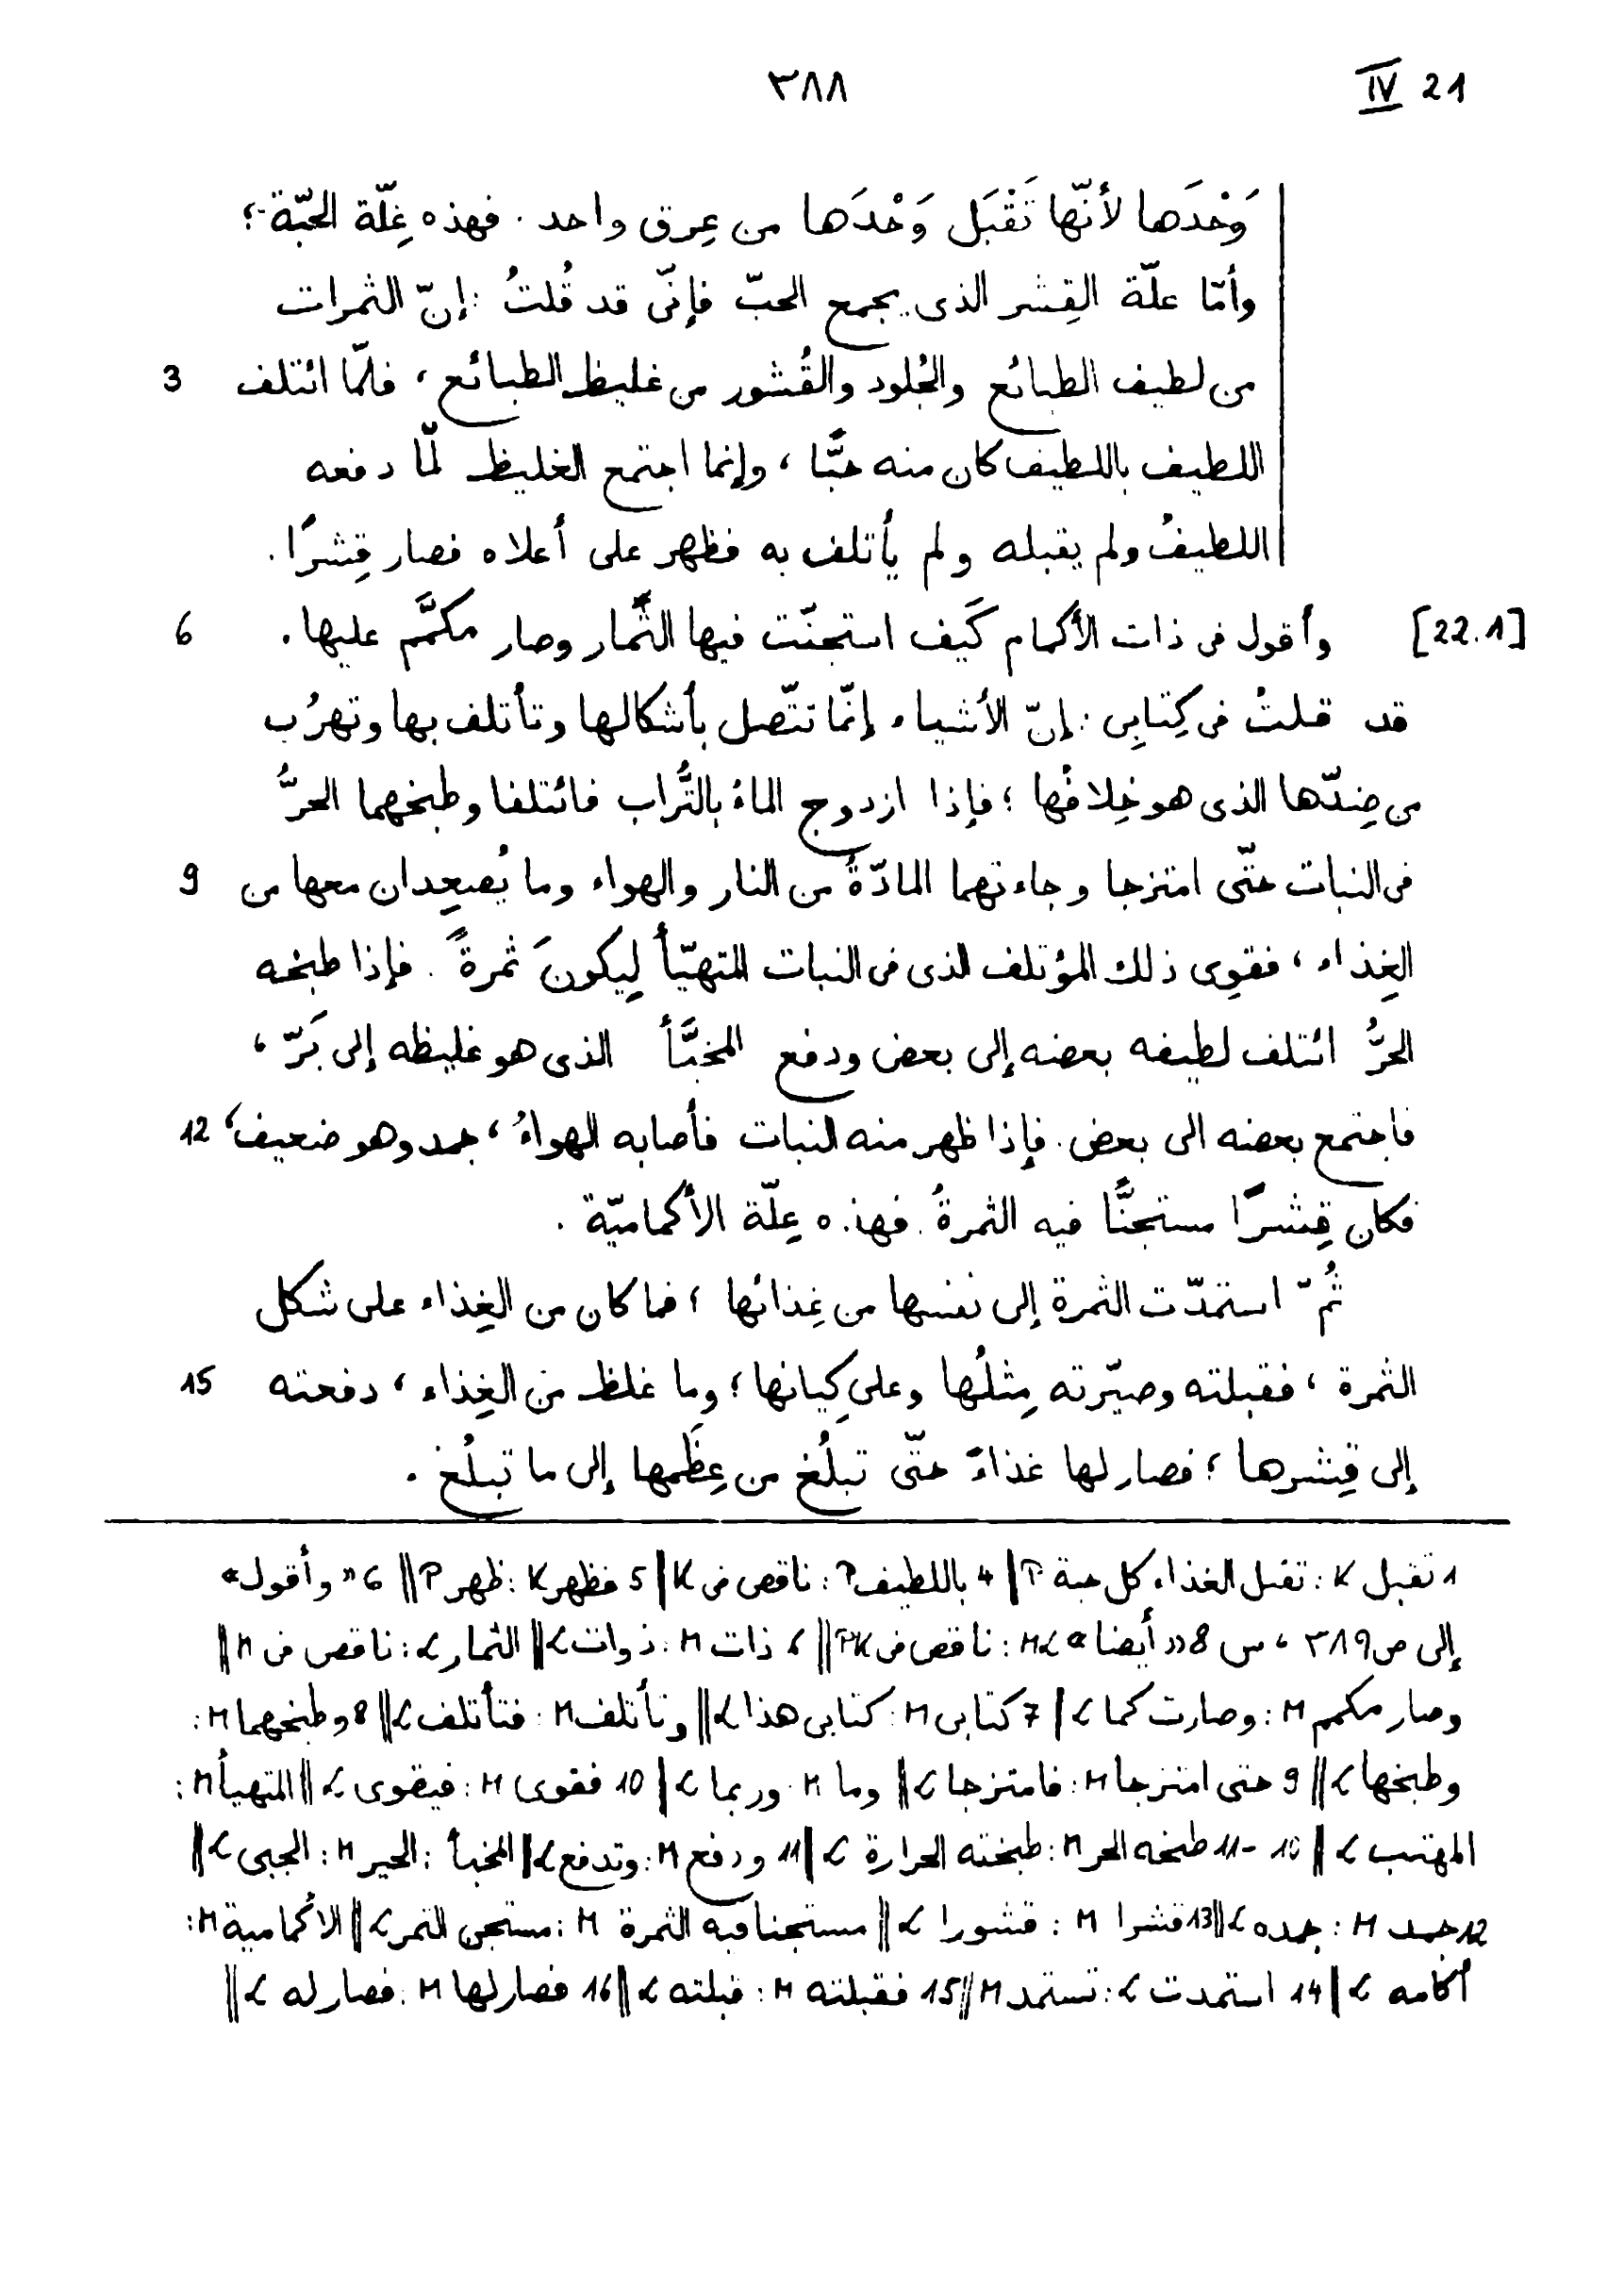 ٣٨٨
IV 21
وَحْدَها لأنّها تَقْبَل وَحْدَها من عِرق واحد . فهذه عِلّة الحبّة ؛
وأمّا علّة القِشر الذى يجمع الحبّ فإنّى قد قُلتُ : إنّ الثمرات
من لطيف الطبائع والجُلود والقُشور من غليظ الطبائع ، فلمّا ائتلف 3
اللطيف باللطيف كان منه حبًّا ، وإنما اجتمع الغليظ لمّا دفعه
اللطيفُ ولم يقبله ولم يأتلف به فظهر على أعلاه فصار قِشرًا .
[22.1] وأقول فى ذات الأكمام كَيف استجنّت فيها الثّمار وصار مكمَّم عليها . 6
قد قلتُ فى كِتابِى : إنّ الأشياء إنّما تتّصل بأشكالها وتأتلف بها وتهرُب
من ضِدّها الذى هو خِلافُها ؛ فإذا ازدوج الماءُ بالتُّراب فائتلفا وطبخهما الحرُّ
فى النبات حتّى امتزجا وجاءتهما المادّةُ من النار والهواء وما يُصعِدان معها من 9
الغِذاء ، فقوِى ذلك المؤتلف الذى فى النبات المتهيّأ لِيكونَ ثمرةً . فإذا طبخه
الحرُّ ائتلف لطيفه بعضه إلى بعض ودفع المخبَّأ الذى هو غليظه إلى بَرّ ،
فاجتمع بعضه الى بعض . فإذا ظهر منه النبات فأصابه الهواءُ ، جمد وهو ضعيف ، 12
فكان قِشرًا مستجنًّا فيه الثمرةُ . فهذه عِلّة الأكماميّة .
ثُمّ استمدّت الثمرة إلى نفسها من غِذائها ؛ فما كان من الغِذاء على شكل
الثمرة ، فقبلته وصيّرته مِثلُها وعلى كِيانها ؛ وما غلظ من الغِذاء ، دفعته 15
إلى قِشرها ؛ فصار لها غذاءً حتّى تبلُغ من عِظَمها إلى ما تبلُغ .
1 تقبل K : تقبل الغذاء كل حبة P | 4 باللطيف P : ناقص فى K | 5 فظهر K : ظهر P || 6 « وأقول »
إلى ص ٣٨٩ ، س 8 « أيضا » M L : ناقص فى PK || ، ذات M : ذوات L || الثمار L : ناقص فى M ||
وصار مكمم M : وصارت كما L | 7 كتابى M : كتابى هذا L || وتأتلف M : فتأتلف L || 8 وطبخهما M :
وطبخها L || 9 حتى امتزجا M : فامتزجا L || وما M : وربما L | 10 فقوى M : فيقوى L || المتهيأ M :
المهتب L || 10 - 11 طبخه الحر M : طبخته الحرارة L | 11 ودفع M : وتدفع L || المخبأ : الحير M : الجبى L ||
12 جمد M : جمده L || 13 قشرا M : قشورا L || مستجنا فيه الثمرة M : مستجن الثمر L || الاكمامية M :
أكامه L | 14 استمدت L : تستمد M || 15 فقبلته M : قبلته L || 16 فصار لها M : فصار له L ||